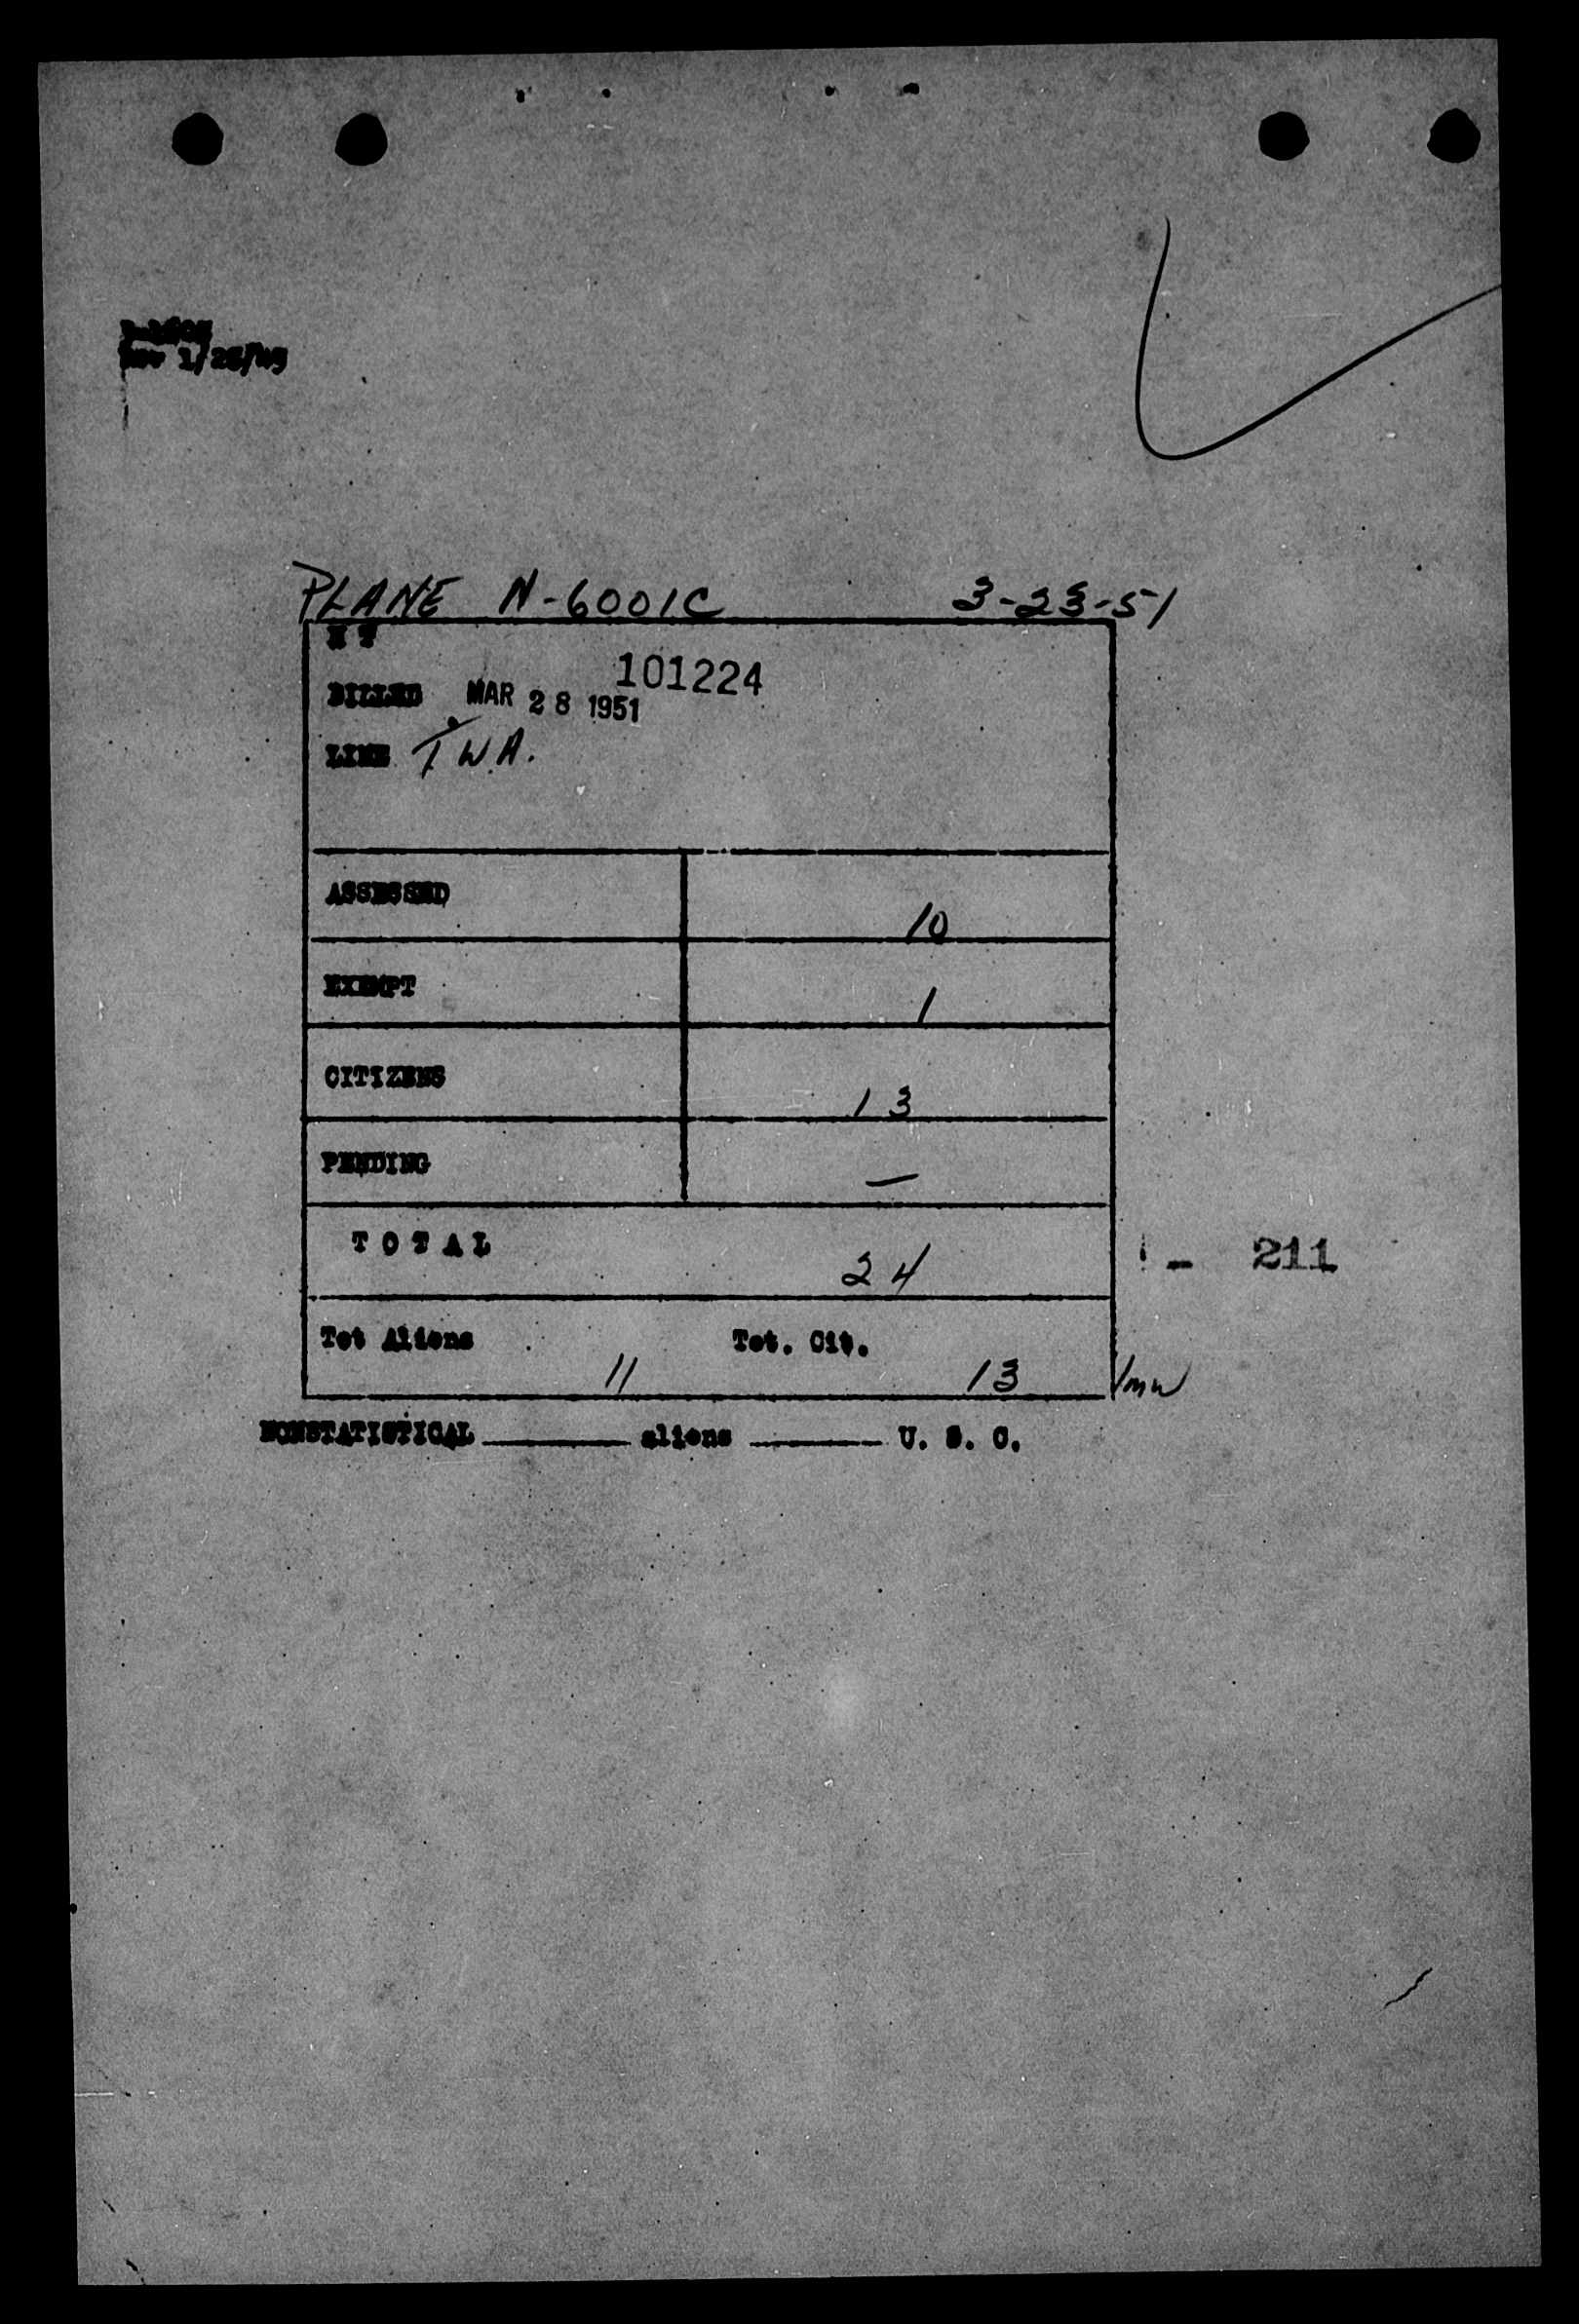 Rev 1/25/49
PLANE N-6001C 3-23-51
101224
BILLED MAR 28 1951
LINE T.W.A.
ASSESSED 10
EXEMPT 1
CITIZENS 13
PENDING —
TOTAL 24
- 211
Tot Aliens 11 Tot. Cit. 13
NONSTATISTICAL ______ aliens ______ U. S. C.